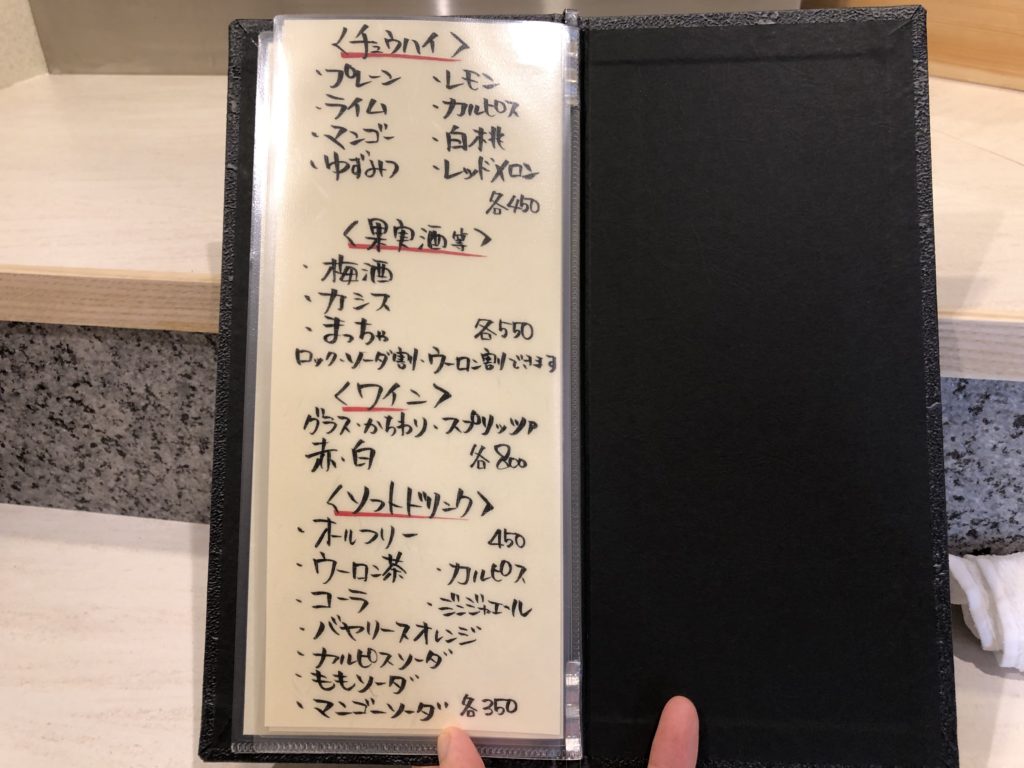 〈チュウハイ〉
・プレーン ・レモン
・ライム ・カルピス
・マンゴー ・白桃
・ゆずみつ ・レッドメロン
各450
〈果実酒等〉
・梅酒
・カシス
・まっちゃ 各550
ロック・ソーダ割・ウーロン割できます
〈ワイン〉
グラス・かちわり・スプリッツァ
赤・白 各800
〈ソフトドリンク〉
・オールフリー 450
・ウーロン茶 ・カルピス
・コーラ ・ジンジャエール
・バヤリースオレンジ
・カルピスソーダ
・ももソーダ
・マンゴーソーダ 各350